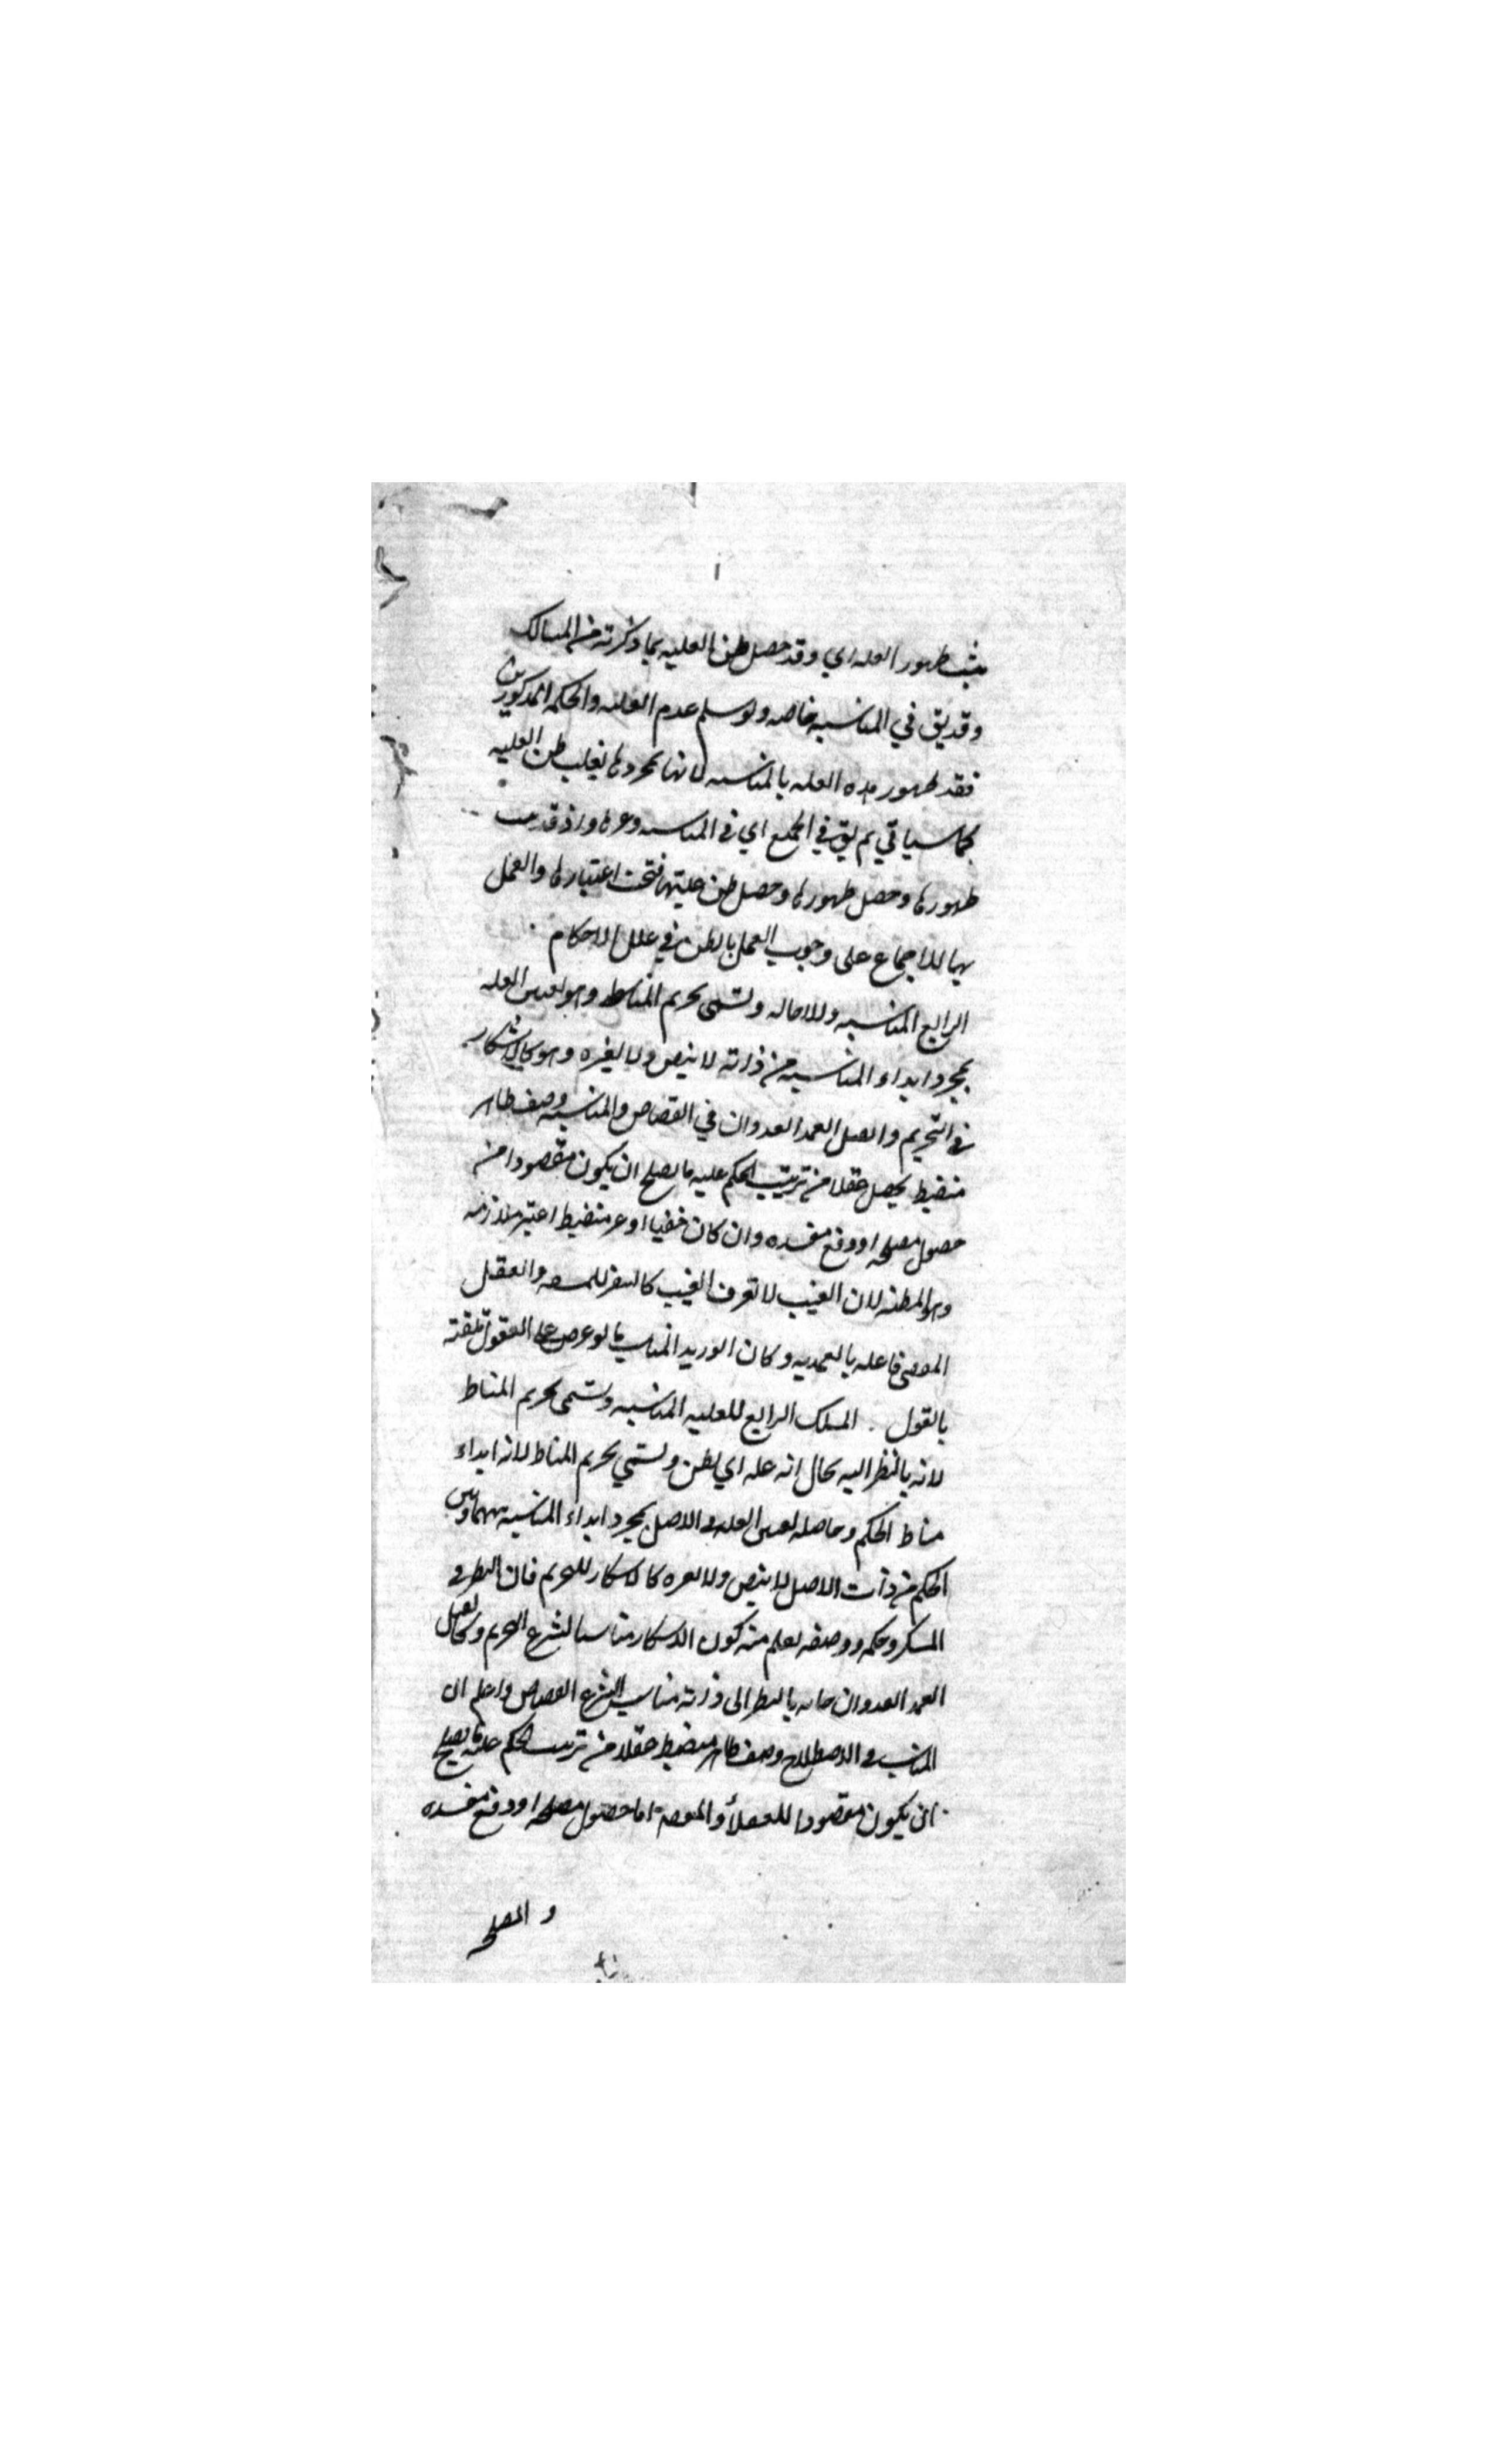 يثبت ظهور العله اي وقد حصل ظن العليه بما ذكرته من المسالك
وقد يق في المناسبه خاصه ولو سلم عدم الغلبه والحكم المذكورين
فقد ظهور هذه العله بالمناسبه لانها بمجردها يغلب ظن العليه
كما سياتي ثم يق في الجميع اي في المناسبه وغيرها واذ قد
ظهورها وحصل ظهورها وحصل ظن عليتها فتحت اعتبارها والعمل
بها للاجماع على وجوب العمل بالظن في علل الاحكام
الرابع المناسبه وللاخاله وتسمى تخريج المناط وهو تعيين العله
بمجرد ابداء المناسبه من ذاته لا بنص ولا لغيره وهو كالاسكار
في التحريم والقتل العمد العدوان في القصاص والمناسبه وصف ظاهر
منضبط يحصل عقلا من ترتيب الحكم عليه ما يصلح ان يكون مقصودا من
حصول مصلحه او دفع مفسده وان كان خفيا او غير منضبط اعتبر ملازمه
وهو المظنه لان الغيب لا تعرف الغيب كالسفر للمشقه والعقل
المقضي فاعله بالعمديه وكان ابو زيد المناسب ما لو عرض على العقول تلقته
بالقبول . المسلك الرابع للعليه المناسبه وتسمى تخريج المناط
لانه بالنظر اليه يخال انه عله اي يظن وتسمي تخريج المناط لانه ابداء
مناط الحكم وحاصله تعيين العله في الاصل بمجرد ابداء المناسبه بينها وبين
الحكم من ذات الاصل لا بنص ولا لغيره كالاسكار للتحريم فان النظر في
المسكر وحكمه ووصفه يعلم منه كون الاسكار مناسبا لشرع التحريم وكالقتل
العمد العدوان فانه بالنظر الى ذاته مناسب لشرع القصاص واعلم ان
المناسب في الاصطلاح وصف ظاهر منضبط عقلا من ترتيب الحكم عليه ما يصلح
ان يكون مقصودا للعقلا والمقصود اما حصول مصلحه او دفع مفسده
والمصلحه